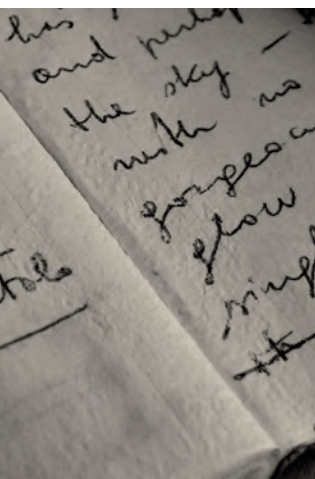 has
and perhap
the sky –
with no
gorgeou
glow
singl